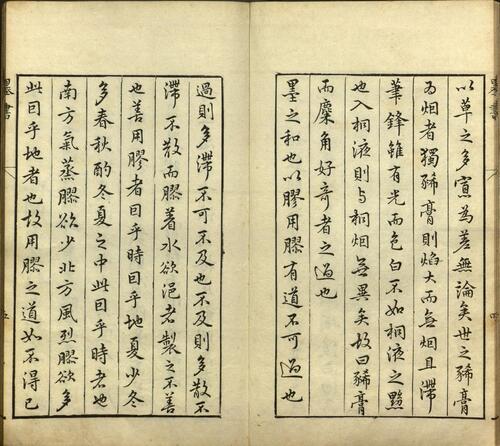 以草之多寡為差無論矣世之豨膏
為烟者獨豨膏則焰大而無烟且滯
筆鋒雖有光而色白不如桐液之黯
也入桐液則与桐烟無異矣故曰豨膏
而麋角好奇者之過也
墨之和也以膠用膠有道不可過也
過則多滯不可不及也不及則多散不
滯不散而膠著水欲浥者製之不善
也善用膠者曰乎時曰乎地夏少冬
多春秋酌冬夏之中此曰乎時者也
南方氣蒸膠欲少北方風烈膠欲多
此曰乎地者也故用膠之道如不得已
墨書
四
墨書
五